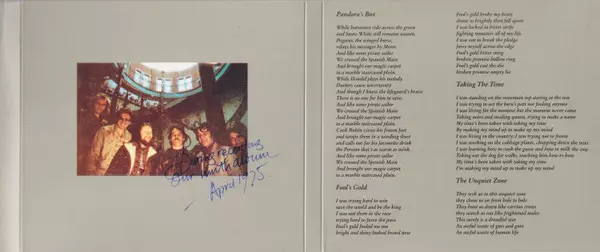 During recording
our ninth album
April 1975.
Pandora's Box
While horsemen ride across the green
and Snow White still remains unseen,
Pegasus, the winged horse,
relays his messages by Morse
And like some pirate sailor
We crossed the Spanish Main
And brought our magic carpet
to a marble staircased plain.
While Isolde plays his melody
Destiny cause uncertainty
And though I know the lifeguard's brave
There is no one for him to save.
And like some pirate sailor
We crossed the Spanish Main
And brought our magic carpet
to a marble staircased plain.
Cock Robin views his frozen feet
and wraps them in a winding sheet
and calls out for his favourite drink
the Persian that's as warm as mink.
And like some pirate sailor
We crossed the Spanish Main
And brought our magic carpet
to a marble staircased plain.
Fool's Gold
I was trying hard to win
save the world and be the king
I was out there in the race
trying hard to force the pace
Fool's gold fooled me too
bright and shiny looked brand new
Fool's gold broke my heart
shone so brightly then fell apart
I was locked in bitter strife
fighting monsters all of my life
I was out to break the pledge
force myself across the edge
Fool's gold bitter sting
broken promise hollow ring
Fool's gold cast the die
broken promise empty lie
Taking The Time
I was standing on the mountain top staring at the sun
I was trying to set the hero's part not fooling anyone
I was living for the moment but the moment never came
Taking notes and stealing quotes, trying to make a name
My time's been taken with taking my time
By making my mind up to make up my mind
I was living in the country I was trying not to freeze
I was working on the cabbage plants, chopping down the trees
I was learning how to rush the game and how to milk the cow
Taking out the dog for walks, teaching him how to bow
My time's been taken with taking my time
I'm making my mind up to make up my mind
The Unquiet Zone
They seek us in this unquiet zone
they chase us far from hearth and home
They hunt us down like carrion crows
they search us out like frightened moles
This surely is a dreadful war
An awful waste of guts and gore
An awful waste of human life